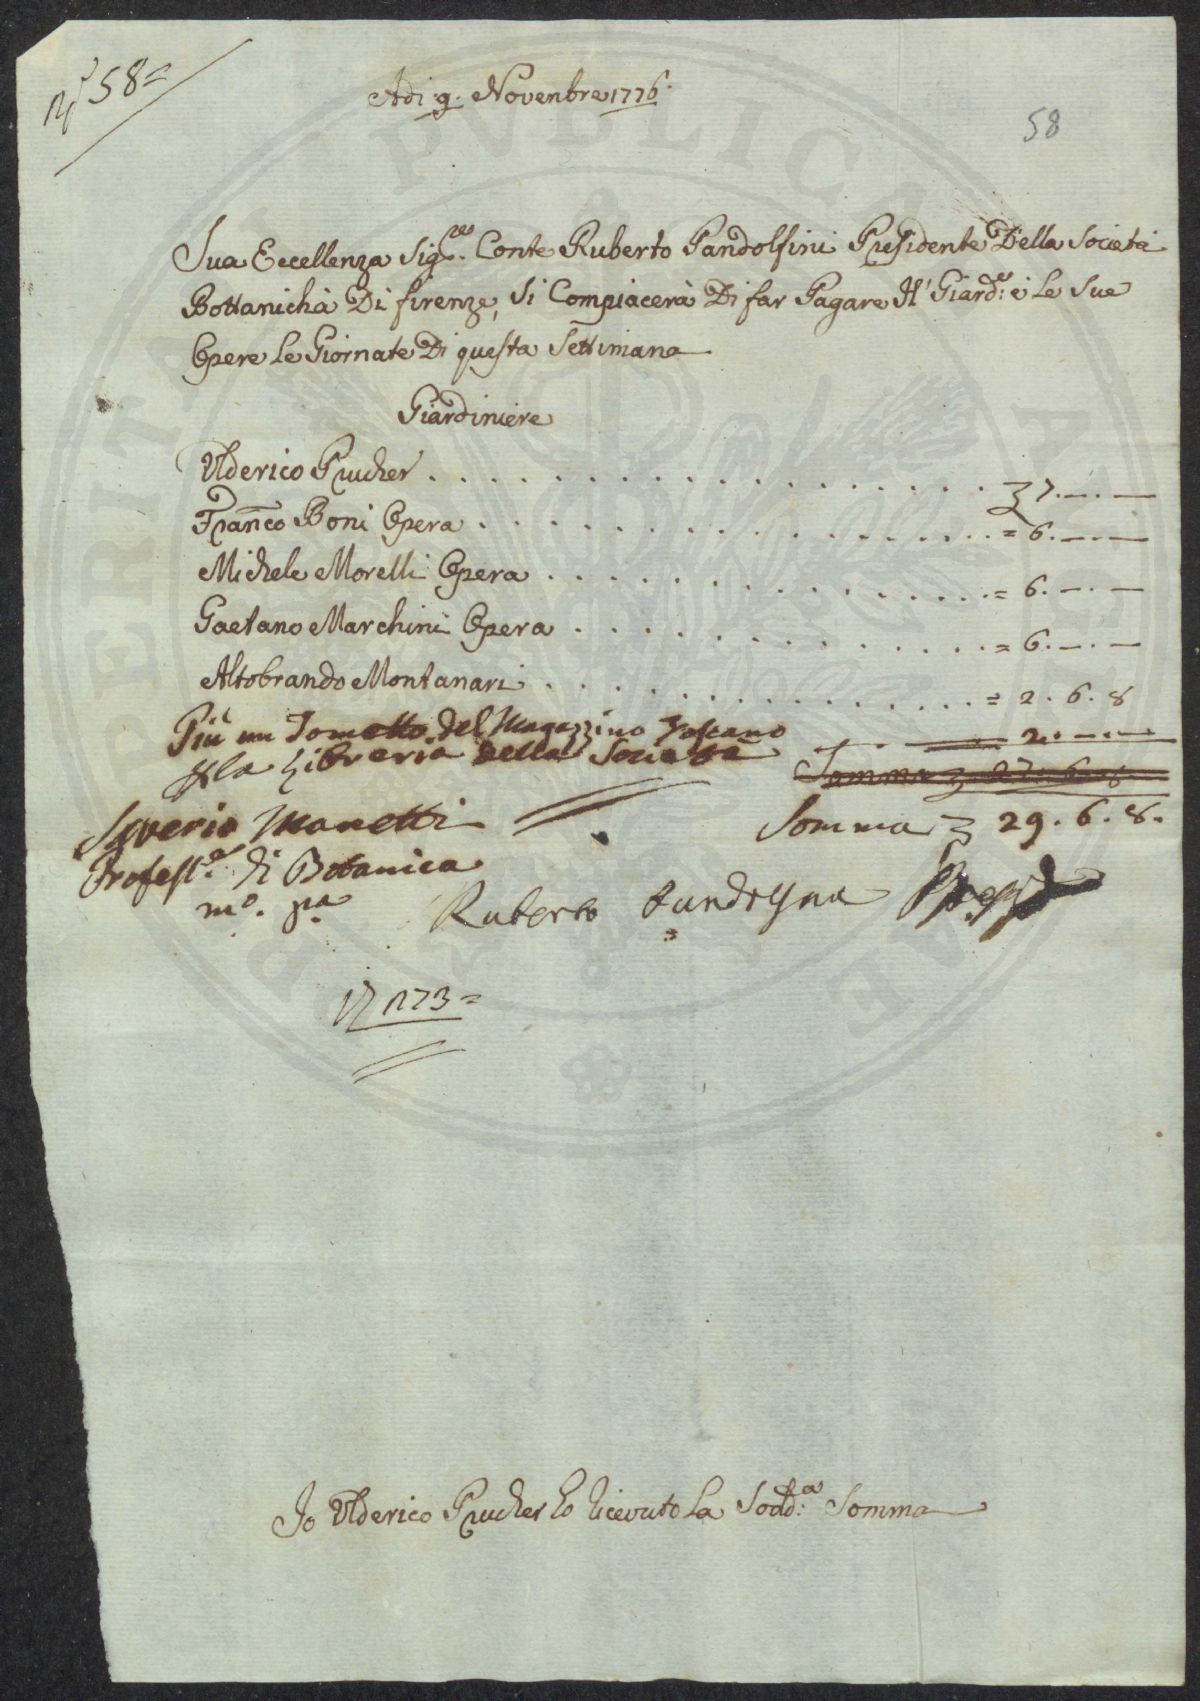 N.° 58=
Adi: 9: Novenbre 1776.
58
Sua Eccellenza Sig.re Conte Ruberto Pandolfini Presidente Della Società
Bottanicha Di firenze, Si Compiacerà Di far Pagare Il Giard.e e Le Sue
Opere Le Giornate Di questa Settimana
Giardiniere
Ulderico Prucher . . . . . . . . . 7.—.—
Franco Boni Opera . . . . . . . . . = 6.—.—
Michele Morelli Opera . . . . . . . . . = 6.—.—
Gaetano Marchini Opera . . . . . . . . . = 6.—.—
Altobrando Montanari . . . . . . . . . = 2.6.8
Più un Tometto del Magazzino Toscano
p la Libreria della Società . . . 2.—.—
Somma 27.6.8
Somma 29.6.8.
Saverio Manetti
Profess.e di Botanica
m.o p.a
Ruberto Pandolfini Presid
173=
Io Ulderico Prucher ho ricevuto La Sodd.a Somma